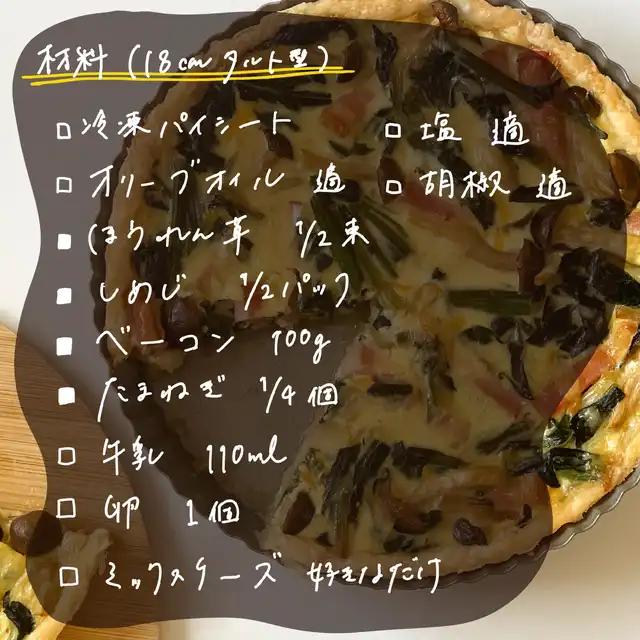 材料（18cmタルト型）
□冷凍パイシート
□オリーブオイル 適
■ほうれん草 1/2束
■しめじ 1/2パック
■ベーコン 100g
■たまねぎ 1/4個
□牛乳 110ml
□卵 1個
□ミックスチーズ 好きなだけ
□塩 適
□胡椒 適